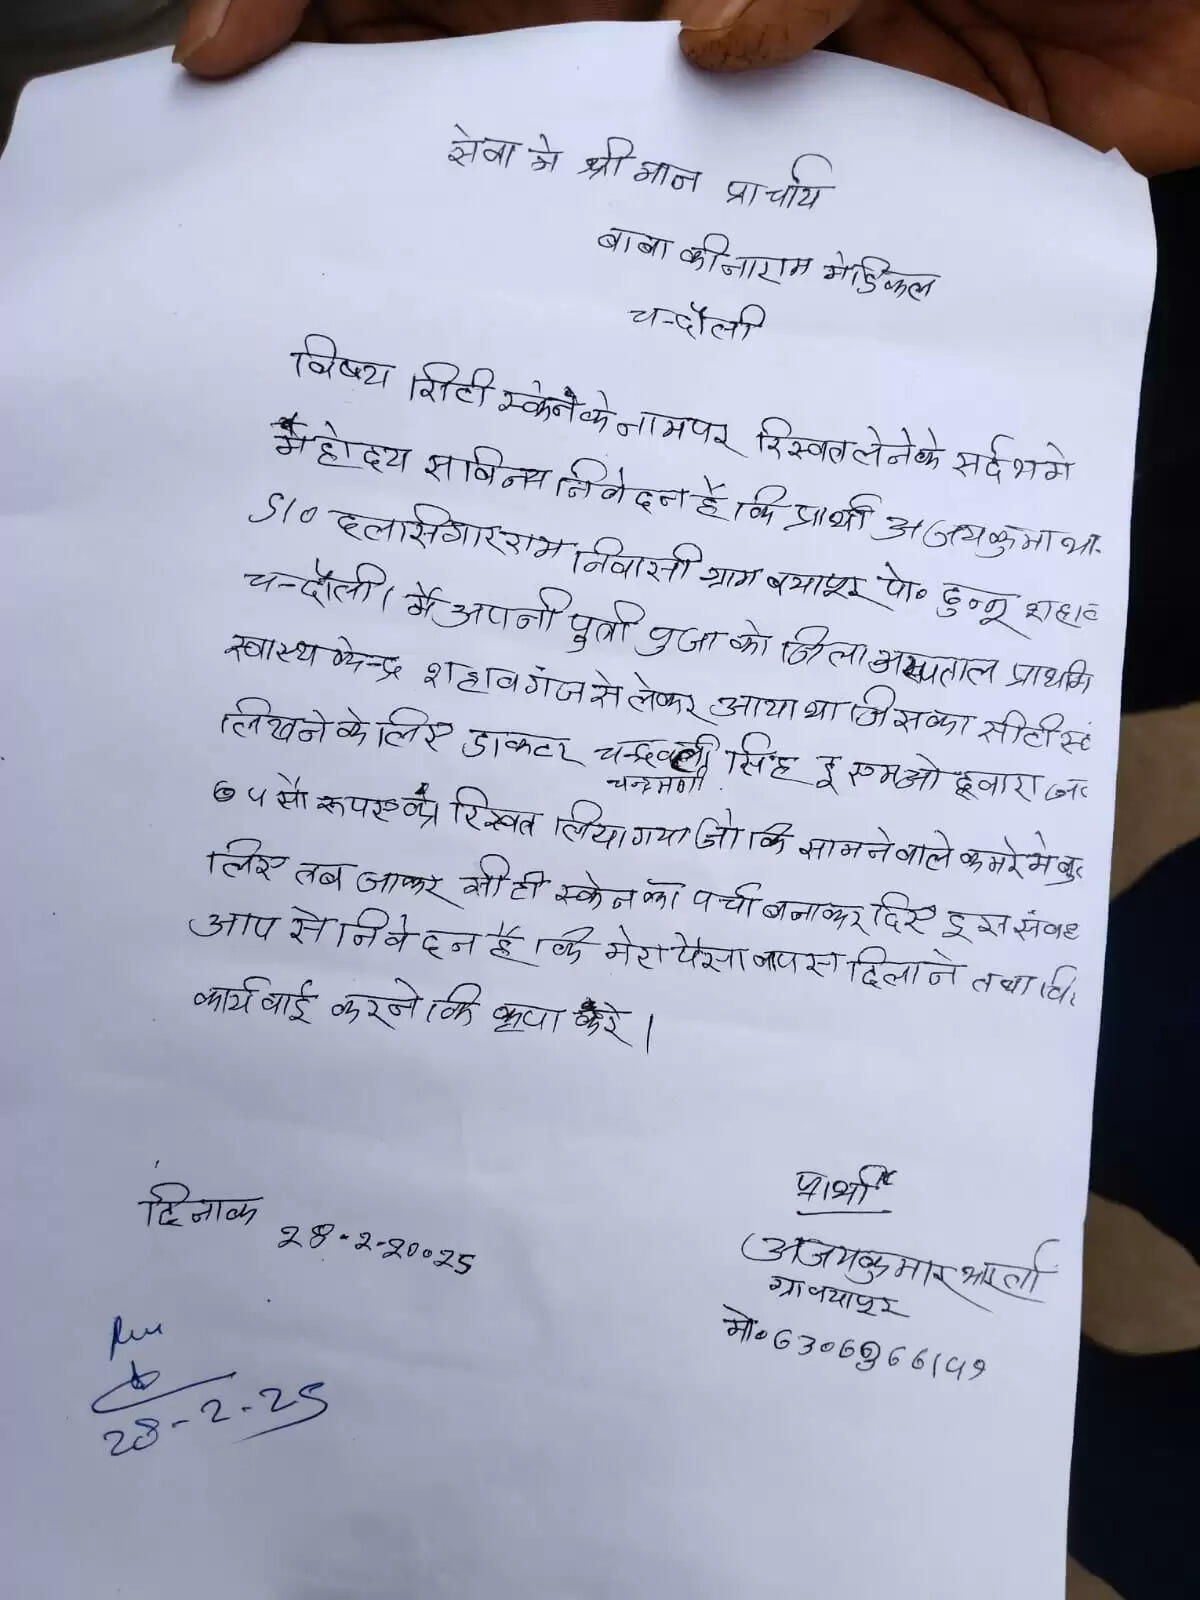 सेवा मे श्री मान प्राचार्य
बाबा कीनाराम मेडिकल
चन्दौली
विषय सिटी स्केन के नाम पर रिस्वत लेने के सर्दभ मे
महोदय सविनय निवेदन है कि प्रार्थी अजय कुमार भा
S/o दलसिगार राम निवासी ग्राम बयापुर पो० डुन्नू शहाब
चन्दौली। मैं अपनी पुत्री पुजा को जिला अस्पताल प्राथमि
स्वास्थ केन्द्र शहाबगंज से लेकर आया था जिसका सीटी स्
लिखने के लिए डाकटर सिंह इ एम ओ द्वारा
चन्द्रमणी
५ सौ रूपए रिस्वत लिया गया जो कि सामने वाले कमरे मे बु
लिए तब जाकर सीटी स्केन का पर्चा बनाकर दिए इस संबध
आप से निवेदन है कि मेरा पैसा वापस दिलाने तथा वि
कार्यवाई करने कि कृपा करे।
प्रार्थी
दिनाक 28-2-2025
अजय कुमार भारती
ग्रा बयापुर
28-2-25